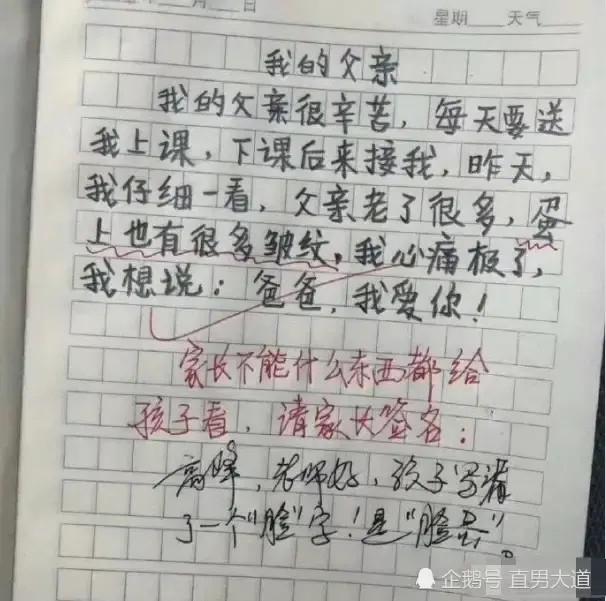 月 日 星期 天气
我的父亲
我的父亲很辛苦，每天要送
我上课，下课后来接我，昨天，
我仔细一看，父亲老了很多，蛋
上也有很多皱纹，我心痛极了，
我想说：爸爸，我爱你！
家长不能什么东西都给
孩子看，请家长签名：
高峰，老师好，孩子写漏
了一个“脸”字！是“脸蛋”。
企鹅号 直男大道